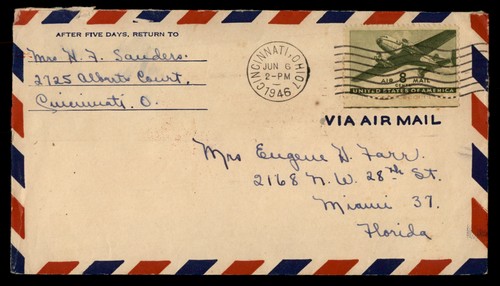 AFTER FIVE DAYS, RETURN TO
Mrs H. F. Sanders.
2725 Alberts Court,
Cincinnati, O.
CINCINNATI, OHIO 7
JUN 6
2-PM
1946
AIR 8 MAIL
CENTS
UNITED STATES OF AMERICA
VIA AIR MAIL
Mrs Eugene H. Farr.
2168 N.W. 28th St.
Miami 37.
Florida